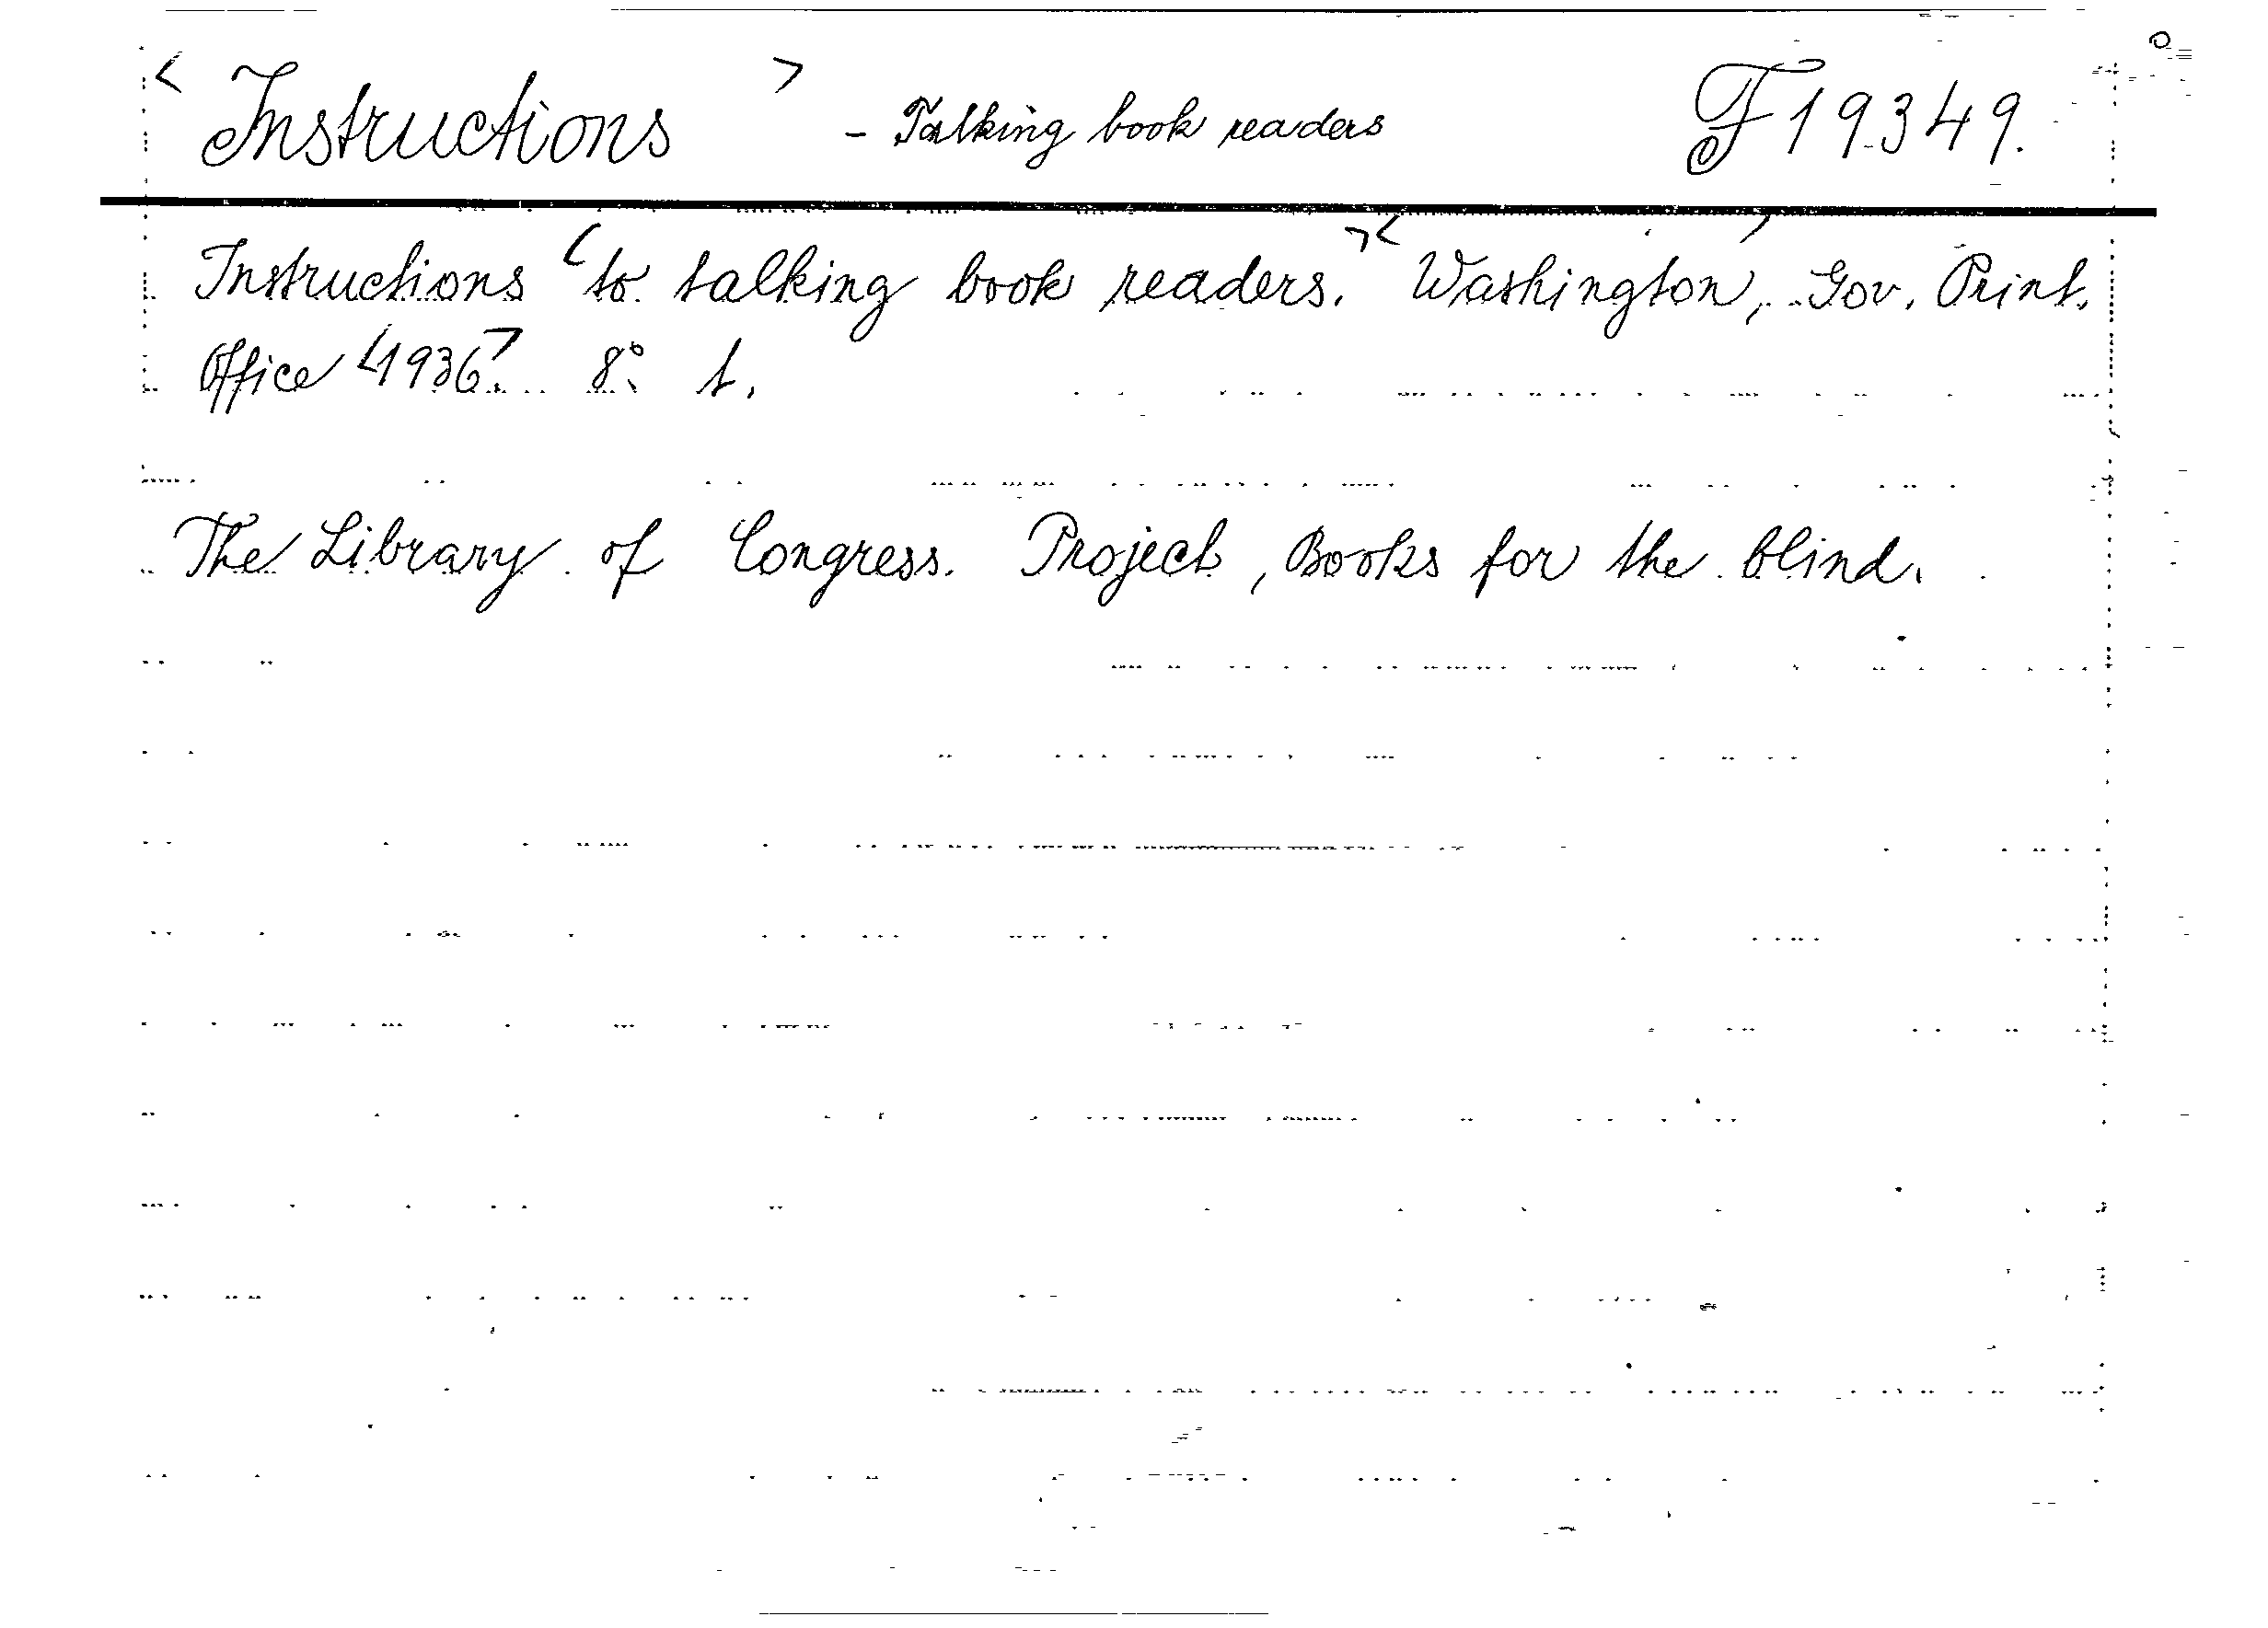 < Instructions > - Talking book readers F 19349.
Instructions <to talking book readers.> <Washington,> Gov. Print.
Office <1936>. 8° t.
The Library of Congress. Project, Books for the blind.